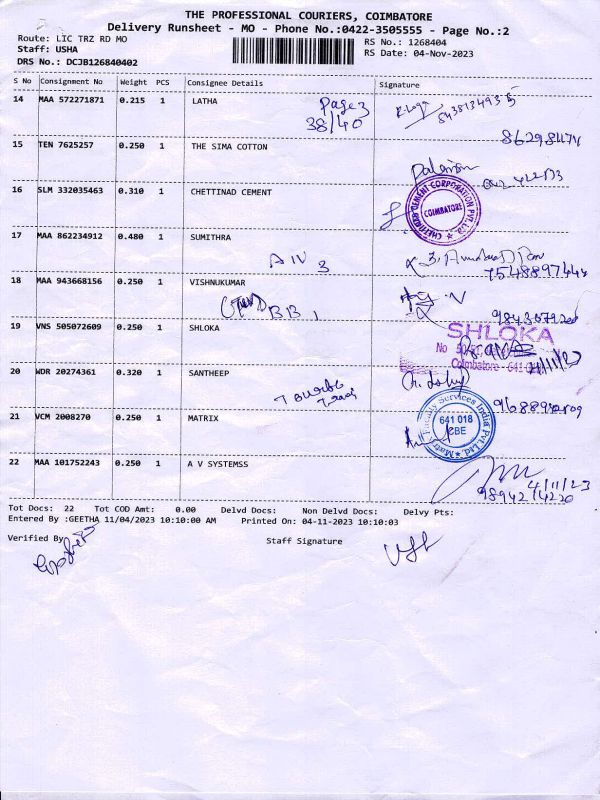 THE PROFESSIONAL COURIERS, COIMBATORE
Delivery Runsheet - MO - Phone No.:0422-3505555 - Page No.:2
Route: LIC TRZ RD MO
Staff: USHA
DRS No.: DCJB126840402
RS No.: 1268404
RS Date: 04-Nov-2023
S No Consignment No Weight PCS Consignee Details Signature
14 MAA 572271871 0.215 1 LATHA
Page 3
38/40
15 TEN 7625257 0.250 1 THE SIMA COTTON
16 SLM 332035463 0.310 1 CHETTINAD CEMENT
CHETTINAD CEMENT CORPORATION PVT.Ltd.
COIMBATORE
17 MAA 862234912 0.480 1 SUMITHRA
A IV 3
18 MAA 943668156 0.250 1 VISHNUKUMAR
BB 1
19 VNS 505072609 0.250 1 SHLOKA
SHLOKA
No
Coimbatore - 641
20 WDR 20274361 0.320 1 SANTHEEP
21 VCM 2008270 0.250 1 MATRIX
Facility Services India Pvt.Ltd.
641 018
CBE
22 MAA 101752243 0.250 1 A V SYSTEMSS
4/11/23
9894214220
Tot Docs: 22 Tot COD Amt: 0.00 Delvd Docs: Non Delvd Docs: Delvy Pts:
Entered By :GEETHA 11/04/2023 10:10:00 AM Printed On: 04-11-2023 10:10:03
Verified By
Staff Signature